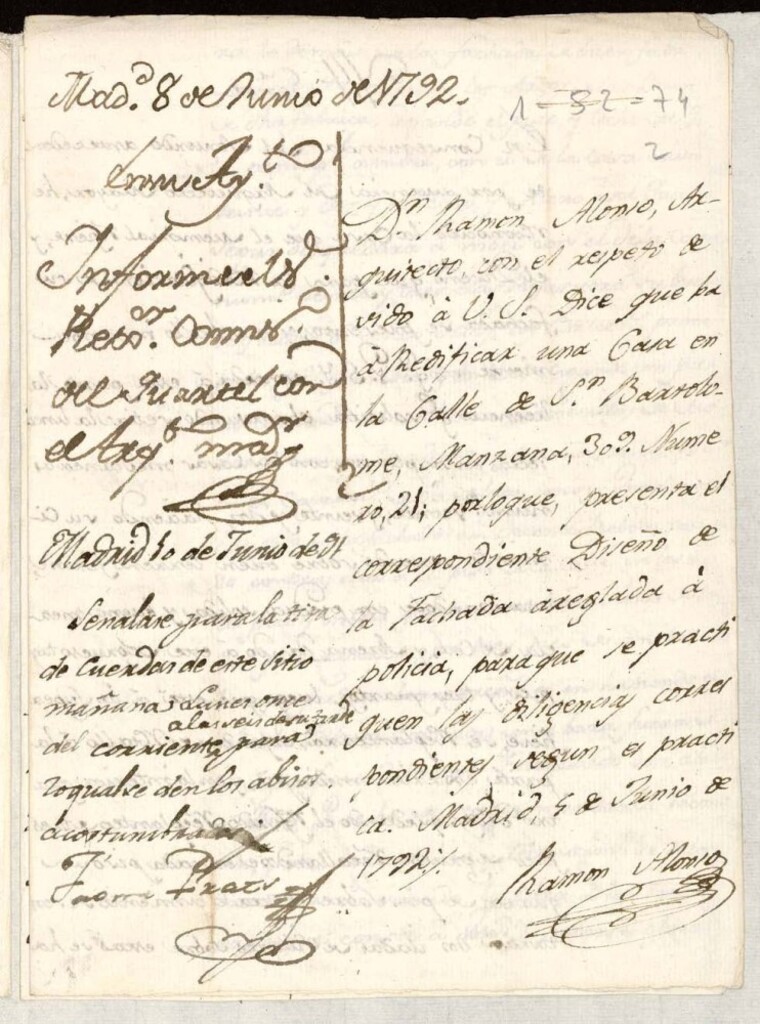 Mad.d 8 de Junio de 1792.
1-52=74
2
En su Ay.to
Informe el S.r
Rexor. Comis.o
del Quartel con
el Arq.to mayr
Madrid 10 de Junio de 92
Señalase para la tira
de Cuerdas de este sitio
mañana Lunes onze
a las seis de su tarde
del corriente para
lo qual se den los abisos
acostumbrados
D.n Ramon Alonso, Ar-
quitecto, con el respeto de
vido à V. S. Dice que ha
à Redificar una Casa en
la Calle de S.n Bartolo-
me, Manzana, 309. Nume
ro, 21; porloque, presenta el
correspondiente Diseño de
la Fachada àreglada à
policia, paraque se practi
quen las diligencias corres
pondientes segun es practi
ca. Madrid 5 de Junio de
1792
Ramon Alonso